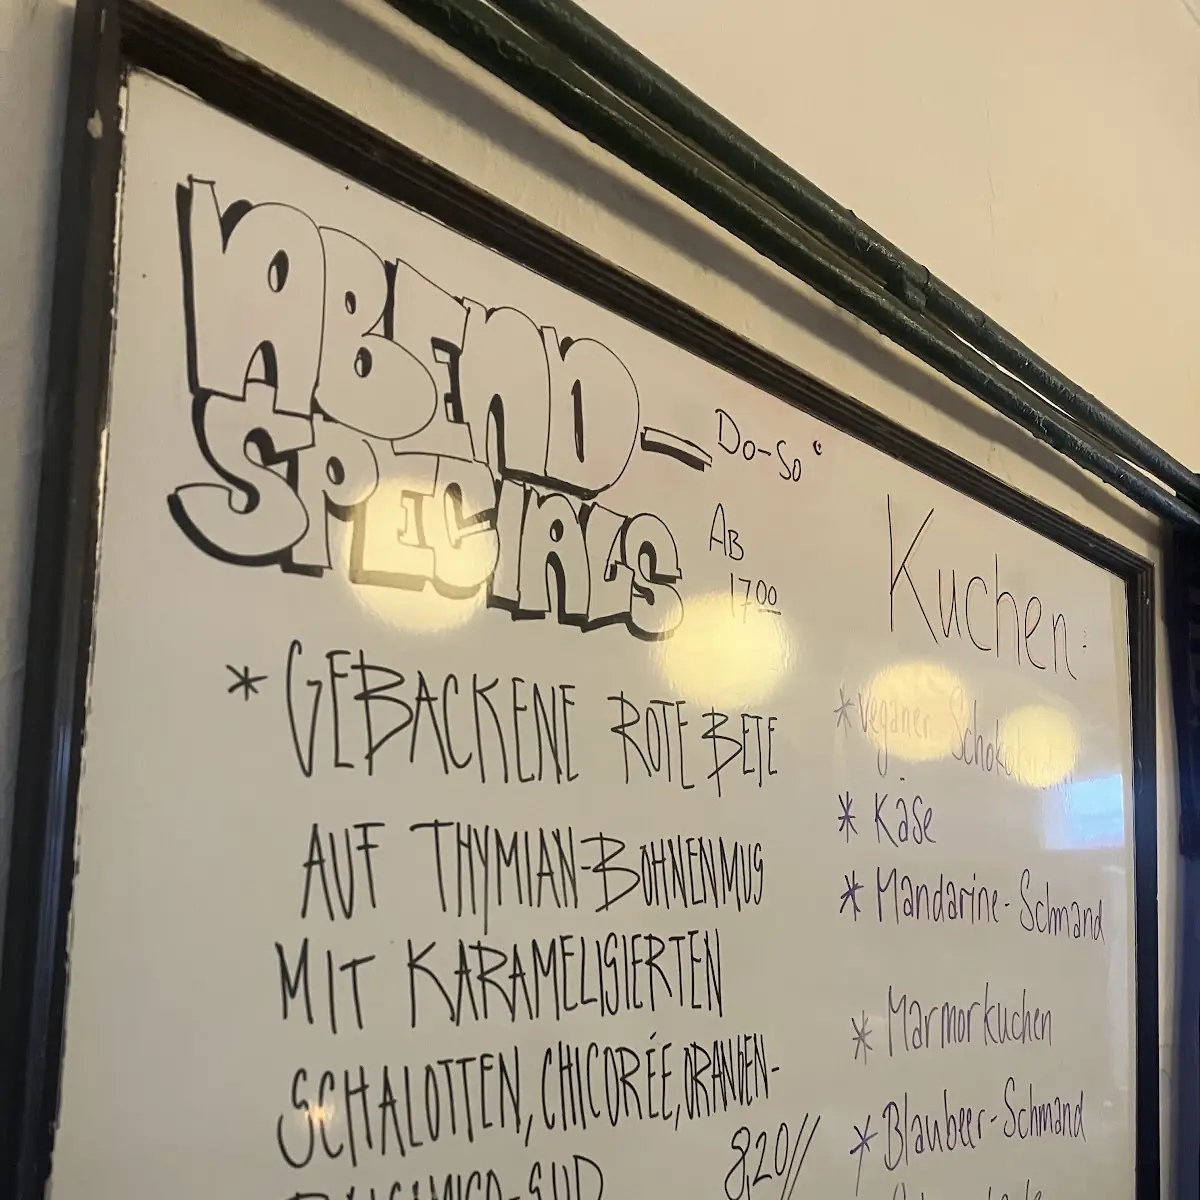 ABEND-
SPECIALS
Do-So
AB
17 00
* GEBACKENE ROTE BETE
AUF THYMIAN-BOHNENMUS
MIT KARAMELISIERTEN
SCHALOTTEN, CHICORÉE, ORANGEN-
BALSAMICO-SUD
8,20//
Kuchen:
* veganer
* Käse
* Mandarine-Schmand
* Marmorkuchen
* Blaubeer-Schmand